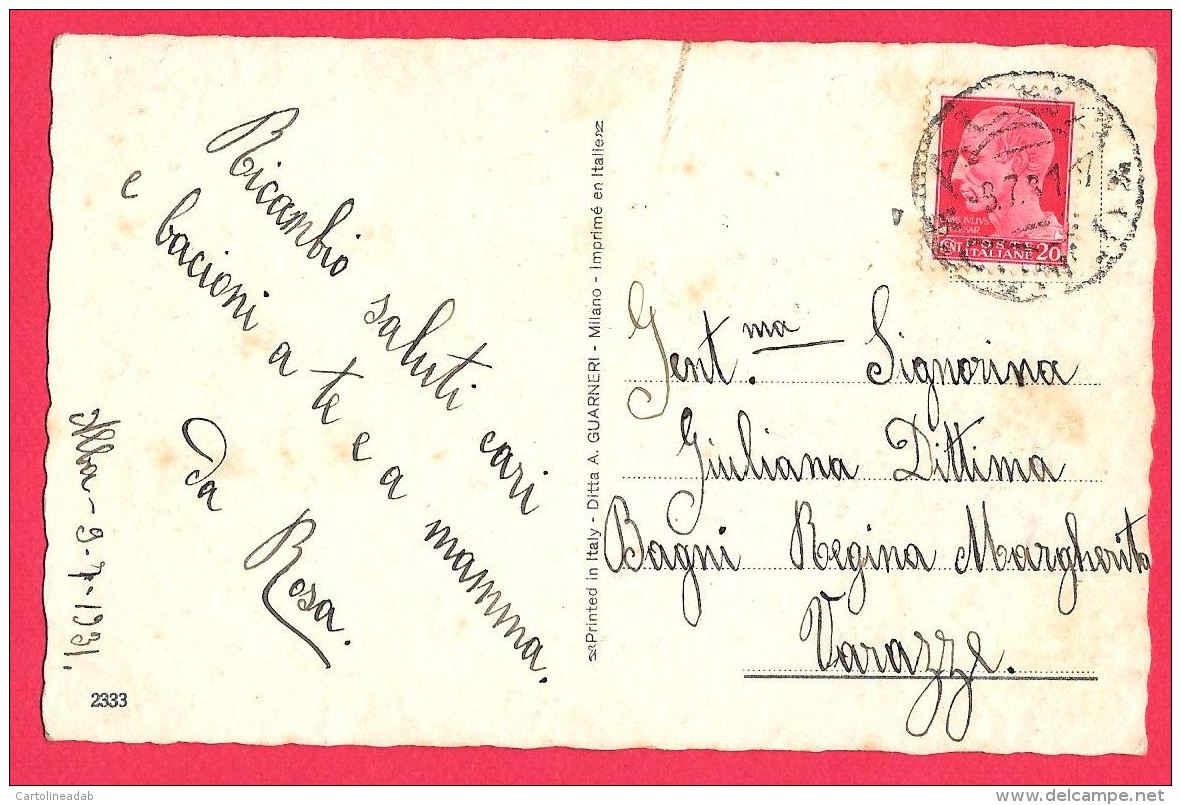 Ricambio saluti cari
e bacioni a te e a mamma.
Da Rosa.
Alba - 9-7-1931.
2333
Printed in Italy - Ditta A. GUARNERI - Milano - Imprimé en Italie
8.7.31
IVLIVS
CENT. 20
ITALIANE
Gent.ma Signorina
Giuliana Dittima
Bagni Regina Margherita
Varazze.
Cartolineadab
www.delcampe.net